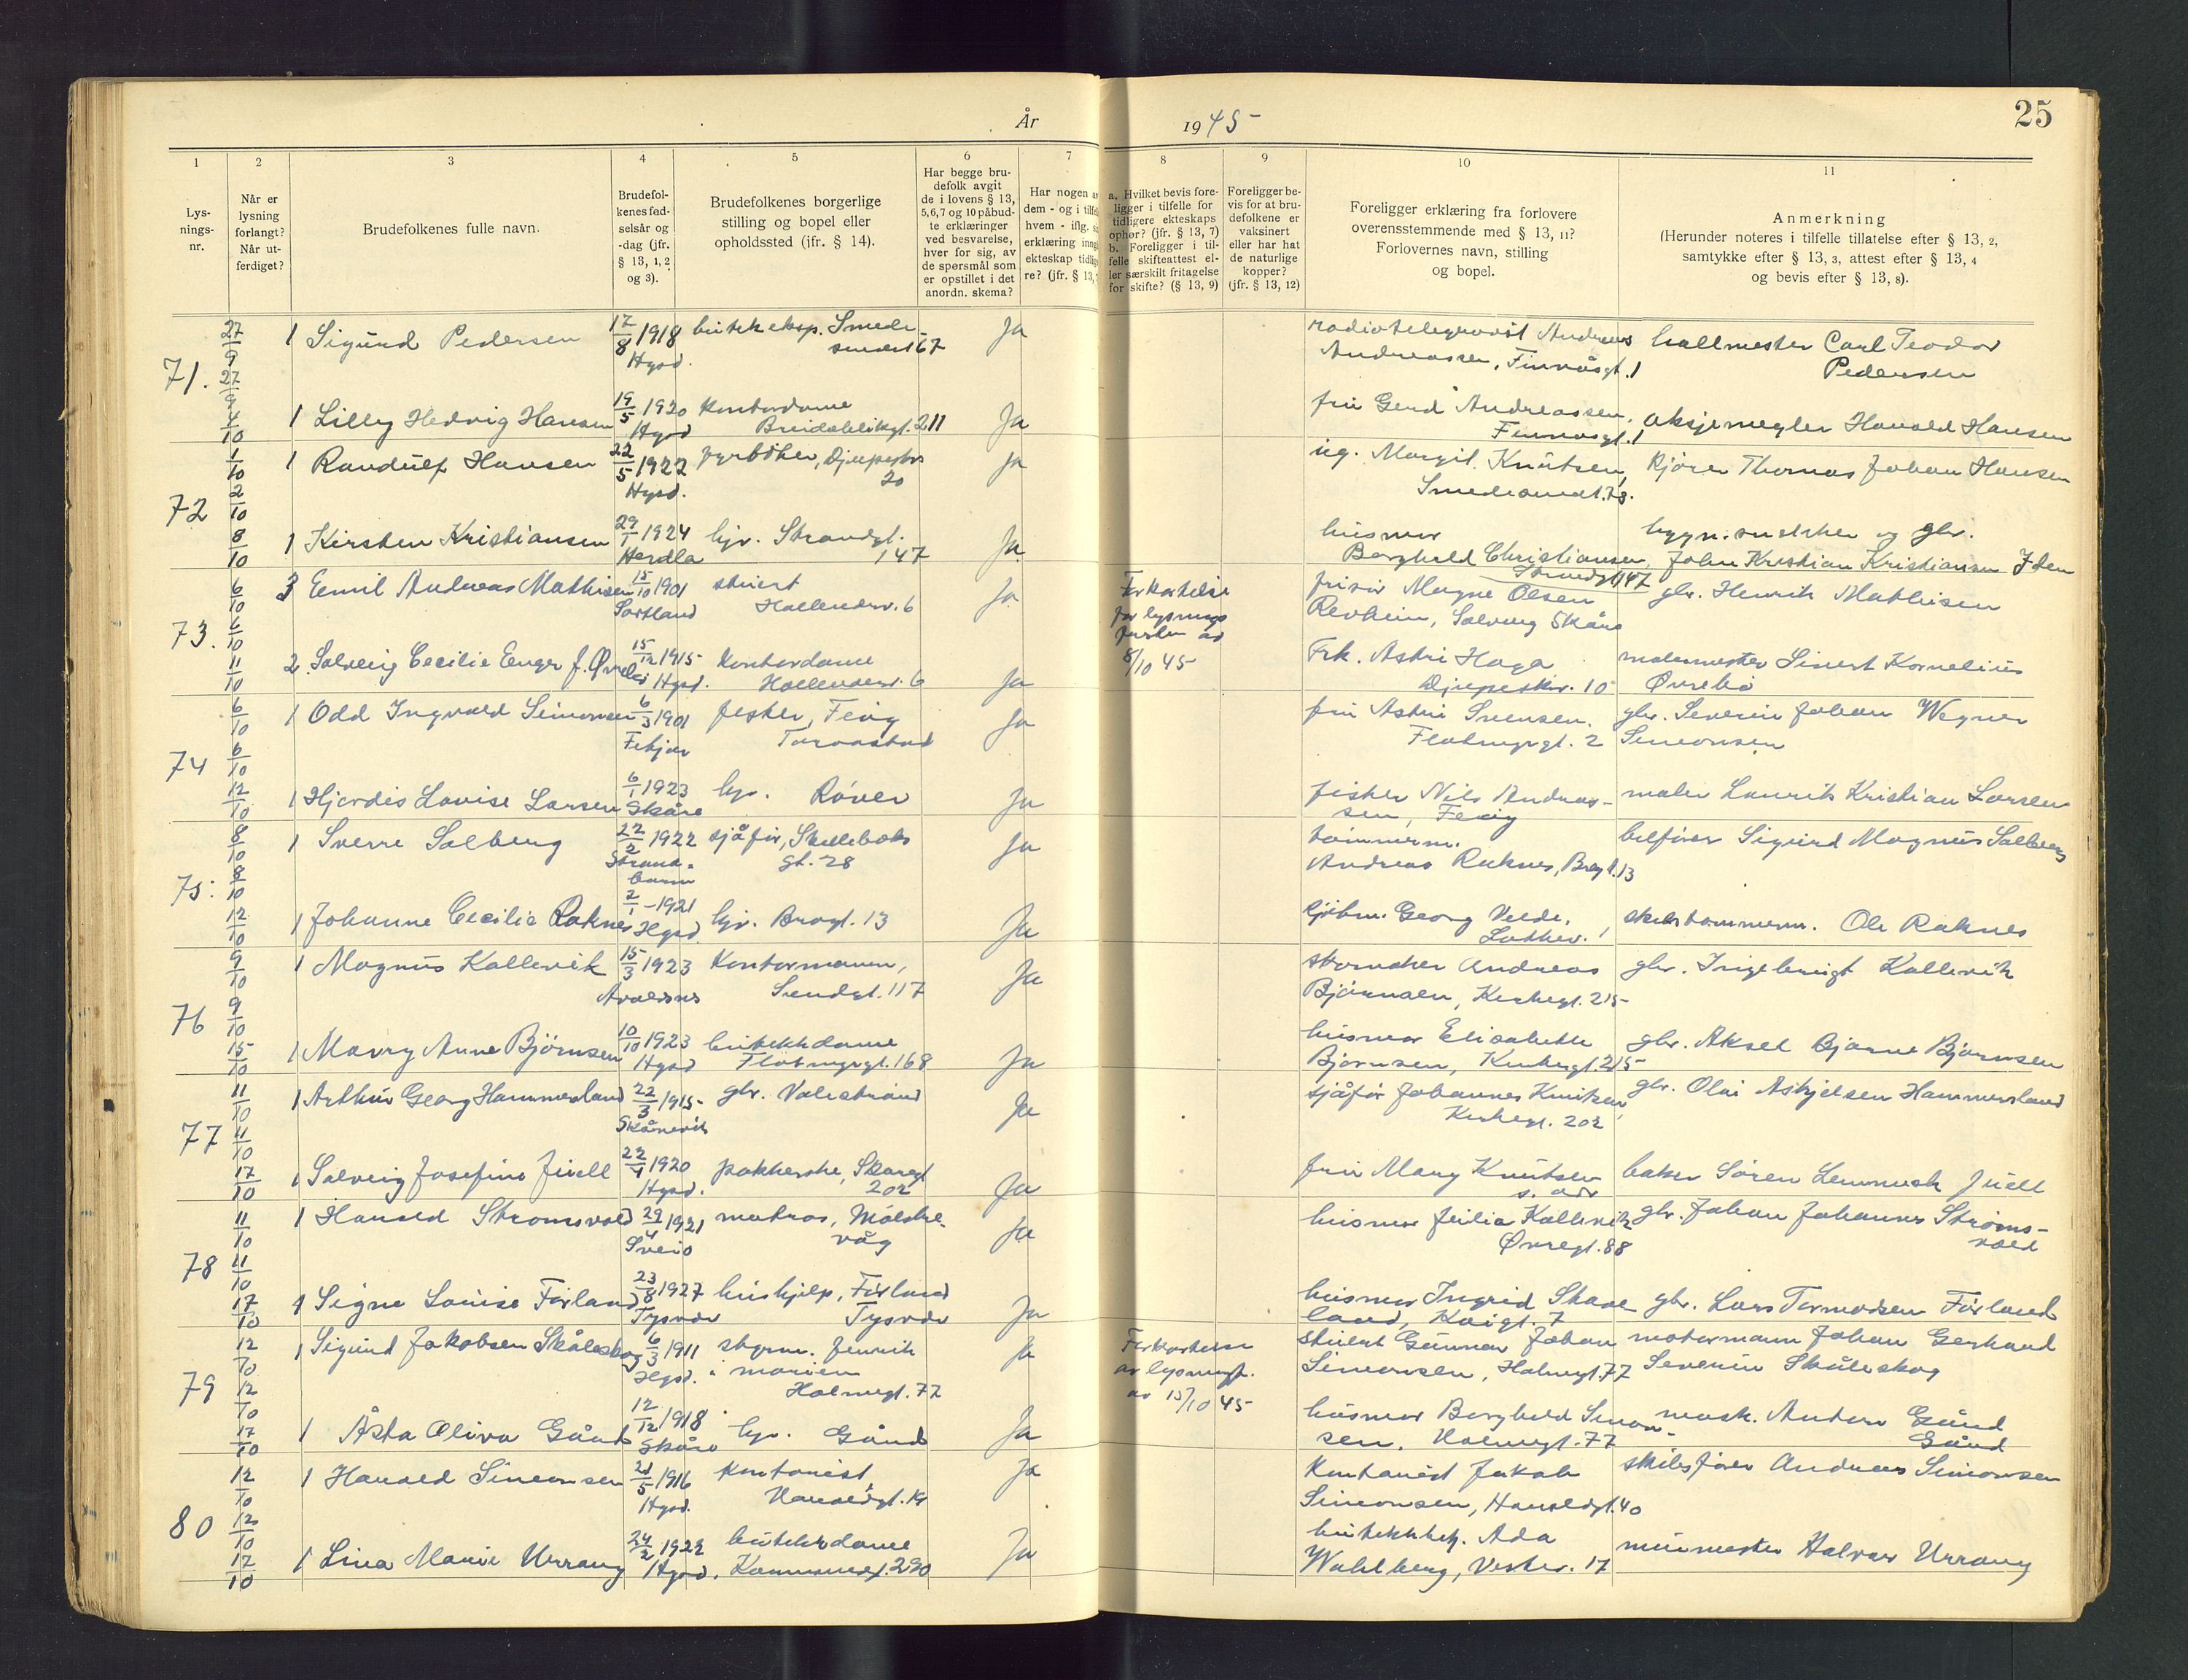 25
År 1945
1 2 3 4 5 6 7 8 9 10 11
Lysnings-nr.
Når er lysning forlangt? Når utferdiget?
Brudefolkenes fulle navn.
Brudefolkenes fødselsår og -dag (jfr. § 13, 1, 2 og 3).
Brudefolkenes borgerlige stilling og bopel eller opholdssted (jfr. § 14).
Har begge brudefolk avgit de i lovens § 13, 5,6,7 og 10 påbudte erklæringer ved besvarelse, hver for sig, av de spørsmål som er opstillet i det anordn. skema?
Har nogen a
dem - og i tilfel
hvem - iflg. s
erklæring inng
ekteskap tidlig
re? (jfr. § 13,
a. Hvilket bevis foreligger i tilfelle for tidligere ekteskaps ophør? (jfr. § 13, 7)
b. Foreligger i tilfelle skifteattest eller særskilt fritagelse for skifte? (§ 13, 9)
Foreligger bevis for at brudefolkene er vaksinert eller har hat de naturlige kopper? (jfr. § 13, 12)
Foreligger erklæring fra forlovere overensstemmende med § 13, 11? Forlovernes navn, stilling og bopel.
Anmerkning
(Herunder noteres i tilfelle tillatelse efter § 13, 2, samtykke efter § 13, 3, attest efter § 13, 4 og bevis efter § 13, 8).
71. 27/9 27/9 4/10
1 Sigurd Pedersen 17/8 1918 Hgsd. butikeksp. Smedasundet 67 Ja
radiotelegrafist Andreas Andreassen, Finnåsgt. 1
hallmester Carl Teodor Pedersen
1 Lilly Hedvig Hansen 19/5 1920 Hgsd kontordame Breidablikgt. 211 Ja
fru Gerd Andreassen, Finnåsgt. 1
aksjemegler Harald Hansen
72 1/10 2/10 8/10
1 Randulf Hansen 22/5 1922 Hgsd. fyrbøter, Djupaskv 20 Ja
ug. Margit Knutsen, Smedasundt. 78.
kjører Thomas Johan Hansen
1 Kirsten Kristiansen 29/1 1924 Herdla hjv. Strandgt. 147 Ja
husmor Borghild Christiansen, Strandgt 147
bygn.snekker og gbr. John Kristian Kristiansen
73. 6/10 6/10 11/10
3 Emil Andreas Mathisen 15/10 1901 Sortland stuert Hollenderv. 6 Ja
Forkortelse for lysningsfristen av 8/10 45
frisør Magne Olsen Revheim, Solvang Skåre
gbr. Henrik Mathisen
2 Solveig Cecilie Enger f. Øvrebø 15/12 1915 Hgsd. kontordame Hollenderv. 6 Ja
Frk. Astri Haga Djupaskv. 10
malermester Sivert Kornelius Øvrebø
74 6/10 6/10 12/10
1 Odd Ingvald Simonsen 6/3 1901 fisker, Feøy Torvastad Ja
fru Astri Svensen, Flotmyrgt. 2
gbr. Severin Johan Wegner Simonsen
1 Hjordis Lovise Larsen 6/1 1923 Skåre hjv. Røvær Ja
fisker Nils Andreassen, Feøy
maler Laurits Kristian Larsen
75. 8/10 8/10 12/10
1 Sverre Solberg 22/2 1922 Strandbarm sjåfør, Skillebeksgt. 28 Ja
tømmerm. Andreas Raknes, Bragt. 13
bilfører Sigurd Magnus Solberg
1 Johanne Cecilie Raknes 2/1 - 1921 Hgsd. hjv. Bragt. 13 Ja
Georg Velde,
skibstømmerm. Ole Raknes
76 9/10 9/10 15/10
1 Magnus Kallevik 15/3 1923 Avaldsnes kontormann, Sundgt. 117 Ja
Andreas Bjørnsen, Kirkegt. 215
gbr. Ingebrigt Kallevik
1 Marry Anne Bjørnsen 10/10 1923 Hgsd butikkdame Flotmyrgt. 168 Ja
husmor Elisabeth Bjørnsen, Kirkegt. 215
gbr. Aksel Bjarne Bjørnsen
77 11/10 11/10 17/10
1 Arthur Georg Hammersland 22/3 1915 Skånevik gbr. Valestrand Ja
sjåfør Johannes Knutsen, Kirkegt. 202
gbr. Olai Askjelsen Hammersland
1 Solveig Josefine Juell 22/4 1920 Hgsd. pakkerske, Skaregt 202 Ja
fru Mary Knutsen s. adr
baker Søren Juell
78 11/10 11/10 17/10
1 Harald Strømsvold 29/4 1921 Sveio matros, Møkstervåg Ja
husmor Julia Kallevik Øvregt. 88
gbr. Johan Johannes Strømsvold
1 Signe Louise Førland 23/8 1927 Tysvær hushjelp, Førland Tysvær Ja
husmor Ingrid Skaaland, Kaigt. 7
gbr. Lars Tormodsen Førland
79 12/10 12/10 17/10
1 Sigurd Jakobsen Skåleskog 6/3 1911 Hgsd. styrm. i marinen Holmegt. 77 Ja
Forkortelse av lysningsf. av 15/10 45
stuert Gunnar Johan Simonsen, Holmegt. 77
motormann Johan Gerhard Severin Skåleskog
1 Åsta Oliva Gaund 12/12 1918 Skåre hjv. Gaund Ja
husmor Borghild Simonsen, Holmegt. 77
mask. Anders Gaund Gaund
80 12/10 12/10 17/10
1 Harald Simonsen 21/5 1916 Hgsd. kontorist, Haraldgt. Ja
kontorist Jakob Simonsen, Haraldgt. 40
skibsfører Andreas Simonsen
1 Lina Marie Urrang 24/2 1922 Hgsd. butikkdame Karmsundgt. 290 Ja
butikkbest. Ada Wahlberg, Vesterv. 17
murmester Halvor Urrang